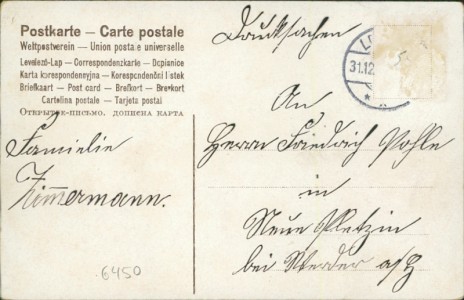 Postkarte — Carte postale
Weltpostverein — Union postale universelle
Levelező-Lap — Correspondenzkarte — Dopisnice
Karta korespondencyjna — Korespondenční lístek
Briefkaart — Post card — Brefkort — Brevkort
Cartolina postale — Tarjeta postal
Открытое-письмо. дописна карта
Drucksachen
31.12
An
Herrn Friedrich Pohle
in
Neue
bei Werder a/H
Familie
Zimmermann.
6450